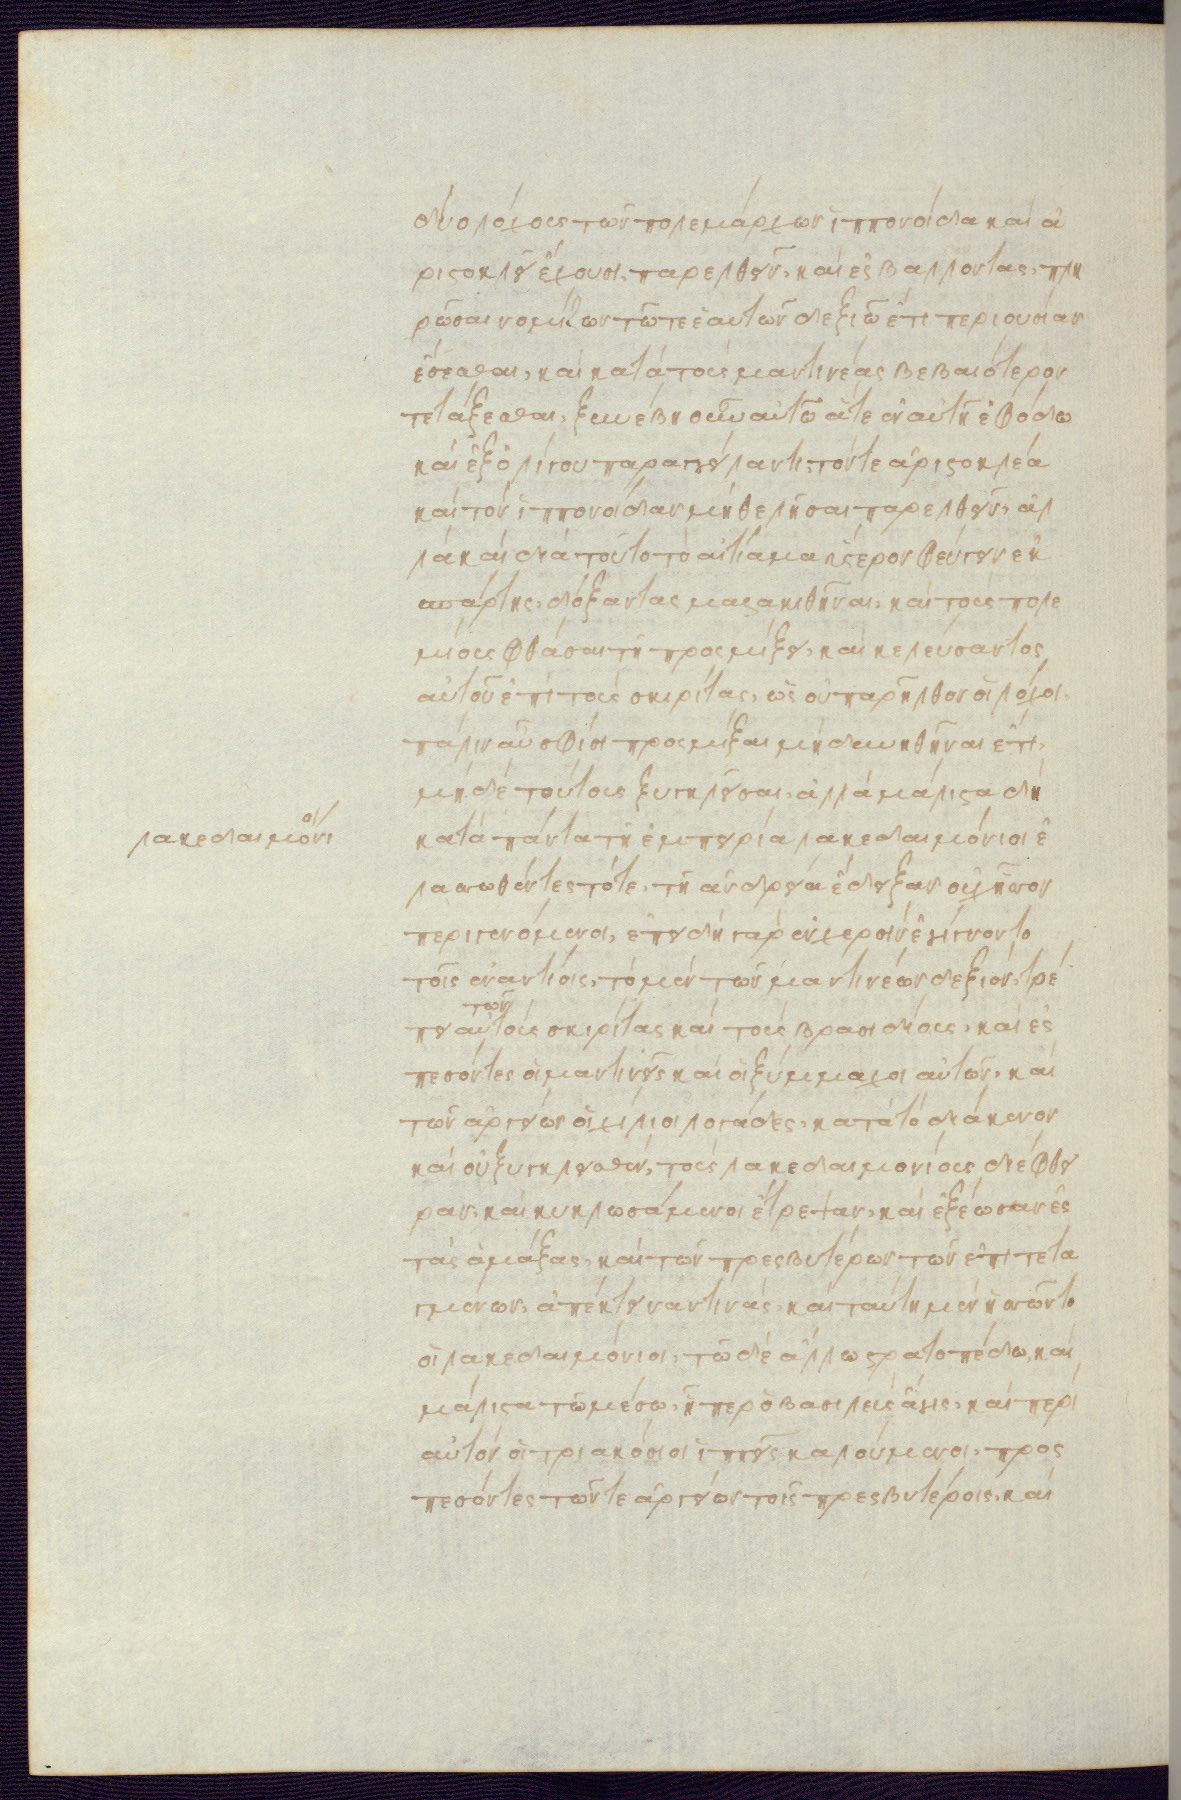 δύο λόχους τῶν πολεμάρχων ἱππονοίδα καὶ ἀ
ριστοκλεῖ ἔχουσι, παρελθεῖν, καὶ ἐσβαλόντας, πλη
ρῶσαι νομίζων τῶ τε ἑαυτῶν δεξιῶ ἔτι περιουσίαν
ἔσεσθαι, καὶ κατὰ τοὺς μαντινέας βεβαιότερον
τετάξεσθαι, ξυνέβη οὖν αὐτῶ ἅτε ἐν αὐτῆ ἐφόδω
καὶ ἐξ ὀλίγου παραγγείλαντι, τόν τε ἀριστοκλέα
καὶ τὸν ἱππονοίδαν μὴ θελῆσαι παρελθεῖν, ἀλ
λὰ καὶ διὰ τοῦτο τὸ αἰτίαμα ὕστερον φεύγειν ἐκ
σπάρτης, δόξαντας μαλακισθῆναι, καὶ τοὺς πολε
μίους φθάσαι τῆ προσμίξει, καὶ κελεύσαντος
αὐτοῦ ἐπὶ τοὺς σκιρίτας, ὡς οὐ παρῆλθον οἱ λόχοι,
πάλιν αὖ σφίσι προσμίξαι μὴ δυνηθῆναι ἔτι,
μηδὲ τούτους ξυγκλεῖσαι, ἀλλὰ μάλιστα δὴ
λακεδαιμόνιοι
κατὰ πάντα τῆ ἐμπειρία λακεδαιμόνιοι ἐ
λασσωθέντες τότε, τῆ ἀνδρεία ἔδειξαν οὐχ ἧσσον
περιγενόμενοι, ἐπειδὴ γὰρ ἐν χερσὶν ἐγίγνοντο
τοῖς ἐναντίοις, τὸ μὲν τῶν μαντινέων δεξιὸν, τρέ
πει αὐτῶν τοὺς σκιρίτας καὶ τοὺς βρασιδίους, καὶ ἐσ
πεσόντες οἱ μαντινεῖς καὶ οἱ ξύμμαχοι αὐτῶν, καὶ
τῶν ἀργείων οἱ χίλιοι λογάδες, κατὰ τὸ διάκενον
καὶ οὐ ξυγκλεισθὲν, τοὺς λακεδαιμονίους διέφθει
ραν, καὶ κυκλωσάμενοι ἔτρεψαν, καὶ ἐξέωσαν ἐς
τὰς ἁμάξας, καὶ τῶν πρεσβυτέρων τῶν ἐπιτετα
γμένων, ἀπέκτειναν τινὰς, καὶ ταύτη μὲν ἡσσῶντο
οἱ λακεδαιμόνιοι, τῶ δὲ ἄλλω στρατοπέδω, καὶ
μάλιστα τῶ μέσω, ἧπερ ὁ βασιλεὺς ἆγις, καὶ περὶ
αὐτὸν οἱ τριακόσιοι ἱππεῖς καλούμενοι, προσ
πεσόντες τῶν τε ἀργείων τοῖς πρεσβυτέροις, καὶ